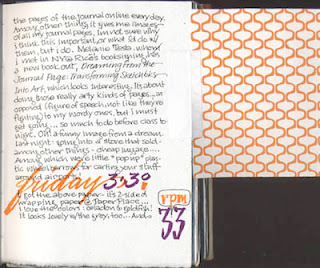 the pages of the journal online every day.
Among other things, it gives me images
of all my journal pages. I'm not sure why
I think this important, or what I'd do w/
them, but I do. Melanie Testa, whom
I met in NYC @ Ricë's booksigning, has
a new book out, Dreaming From the
Journal Page: Transforming Sketches
Into Art, which looks interesting. It's about
doing those really arty kinds of pages, as
opposed (figure of speech, not like they're
fighting) to my wordy ones, but I must
get going... so much to do before class to-
night. Old a funny image from a dream
last night: going into a store that sold -
among other things - cheap luggage...
Among which were little "pop up" plas-
tic wheel barrows for carting your stuff
around airports.
friday 3.30.
I got the above paper - it's 2-sided
wrapping paper @ Paper Place...
I love the colors: celadon & goldfish!
It looks lovely w/ the grey, too... And...
rpm
33